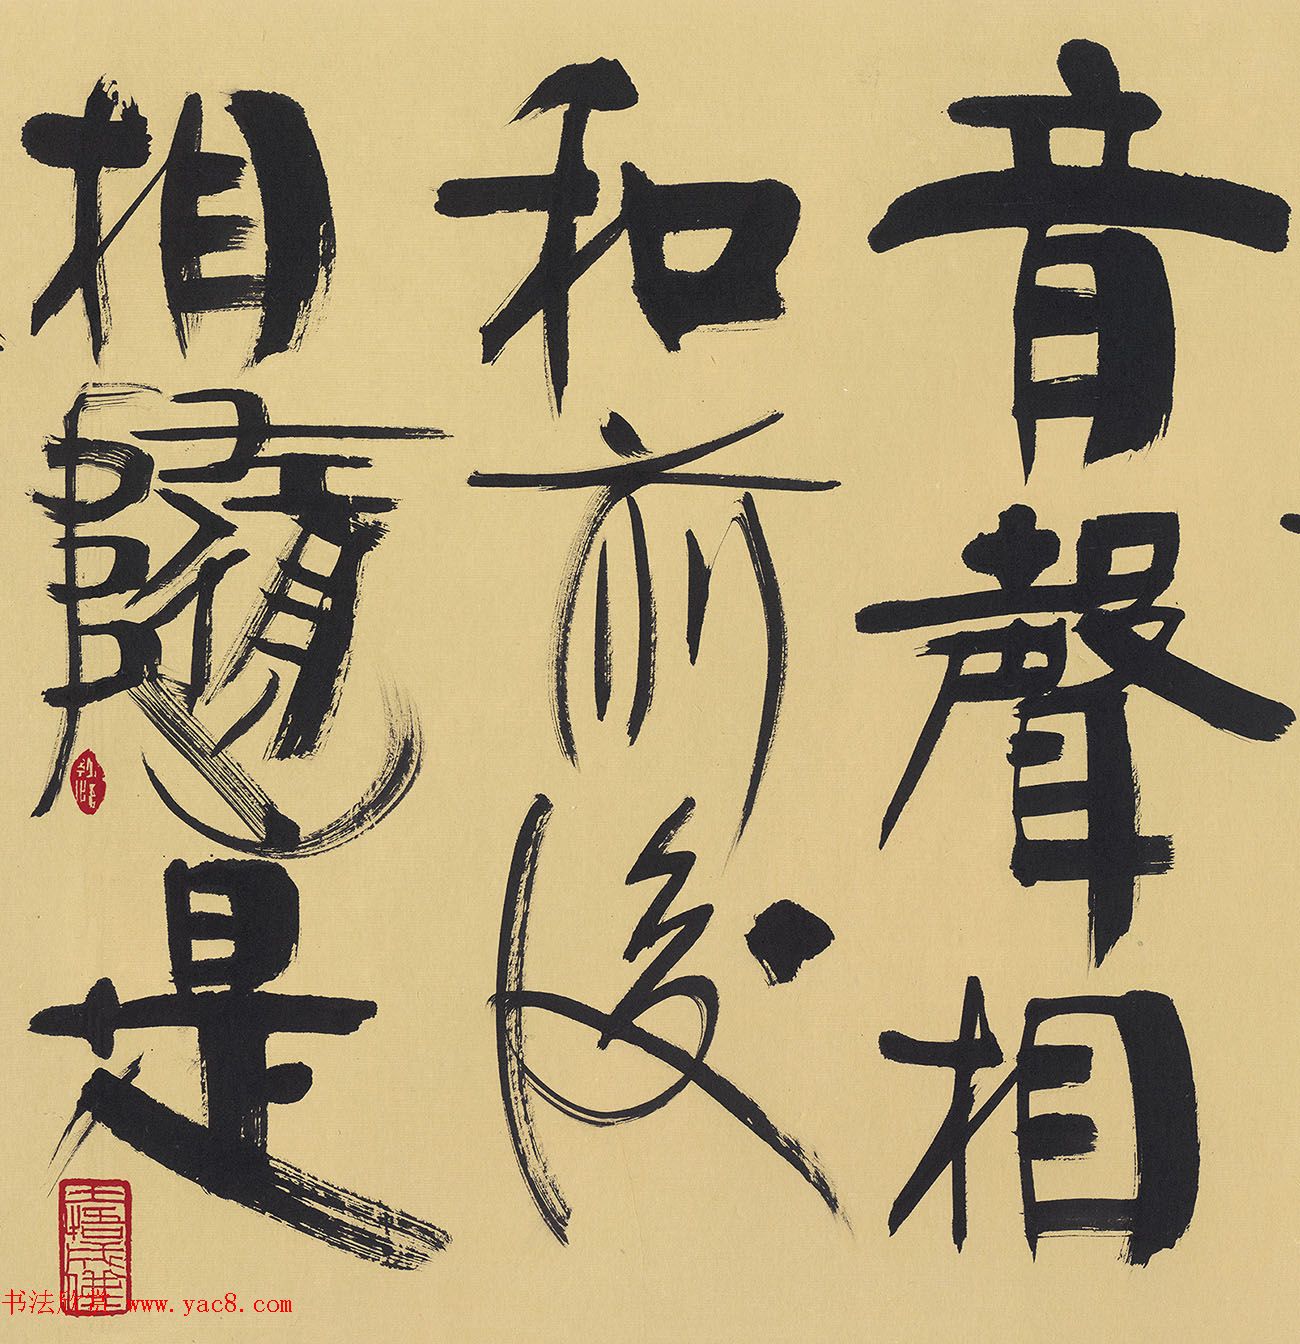 音聲相
和前後
相隨是
书法欣赏 www.yac8.com